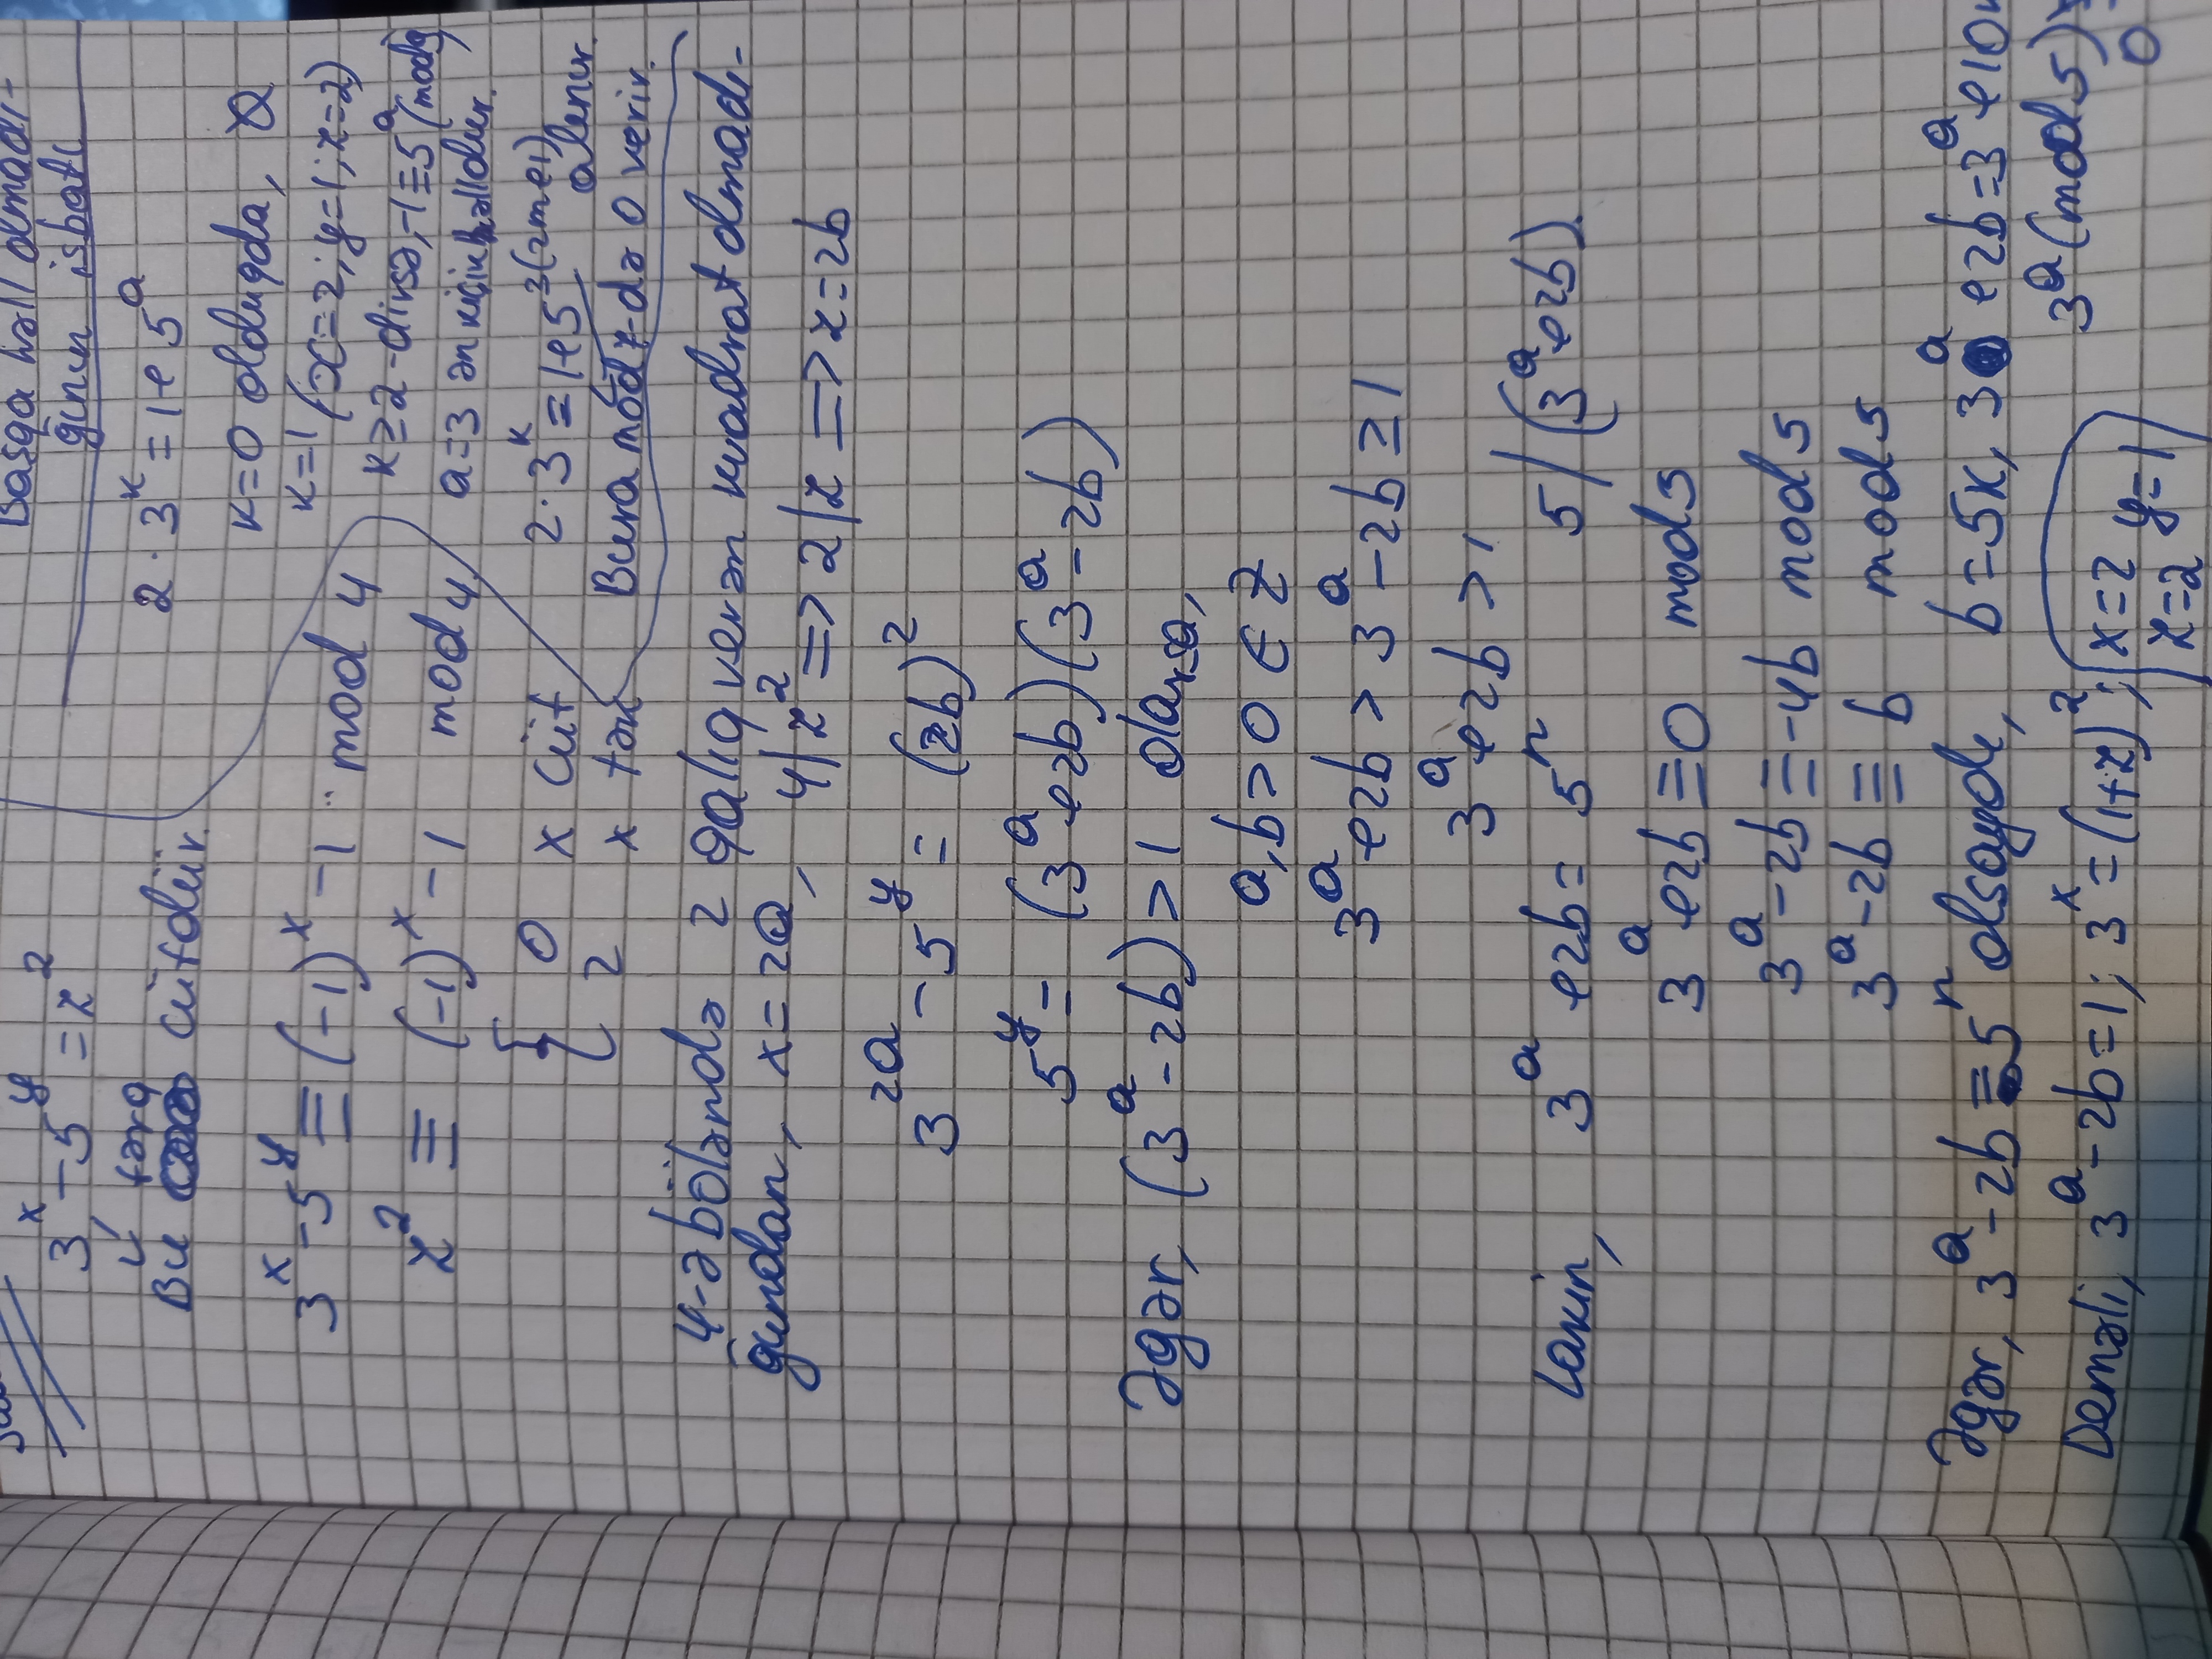 3^x - 5^y = z^2
Bu fərq cütdür.
3^x - 5^y ≡ (-1)^x - 1 mod 4
z^2 ≡ (-1)^x - 1 mod 4
{ 0 x cüt
2 x tək
4-ə böləndə 2 qalıq verən kvadrat olmadı-
ğından, x = 2a, 4|z^2 => 2|z => z = 2b
3^2a - 5^y = (2b)^2
5^y = (3^a + 2b)(3^a - 2b)
Əgər, (3^a - 2b) > 1 olarsa,
a, b > 0 ∈ Z
3^a + 2b > 3^a - 2b ≥ 1
3^a + 2b > 1
Lakin, 3^a + 2b = 5^n 5|(3^a + 2b).
3^a + 2b ≡ 0 mod 5
3^a - 2b ≡ -4b mod 5
3^a - 2b ≡ b mod 5
Əgər, 3^a - 2b = 5^n olsaydı, b = 5k, 3^a + 2b = 3^a + 10k
3^a (mod 5) ≠ 0
Deməli, 3^a - 2b = 1; 3^x = (1+z)^2; x = 2 y = 1
z = 2
Başqa həll olmadı-
ğının isbatı
2 · 3^k = 1 + 5^a
k = 0 olduqda, Ø
k = 1 (x = 2; y = 1; z = 2)
k ≥ 2 - dirsə, -1 ≡ 5^a (mod 9)
a = 3 ən kiçik həlldir.
2 · 3^k = 1 + 5^3(2m+1) alınır.
Bura mod 7-də 0 verir.